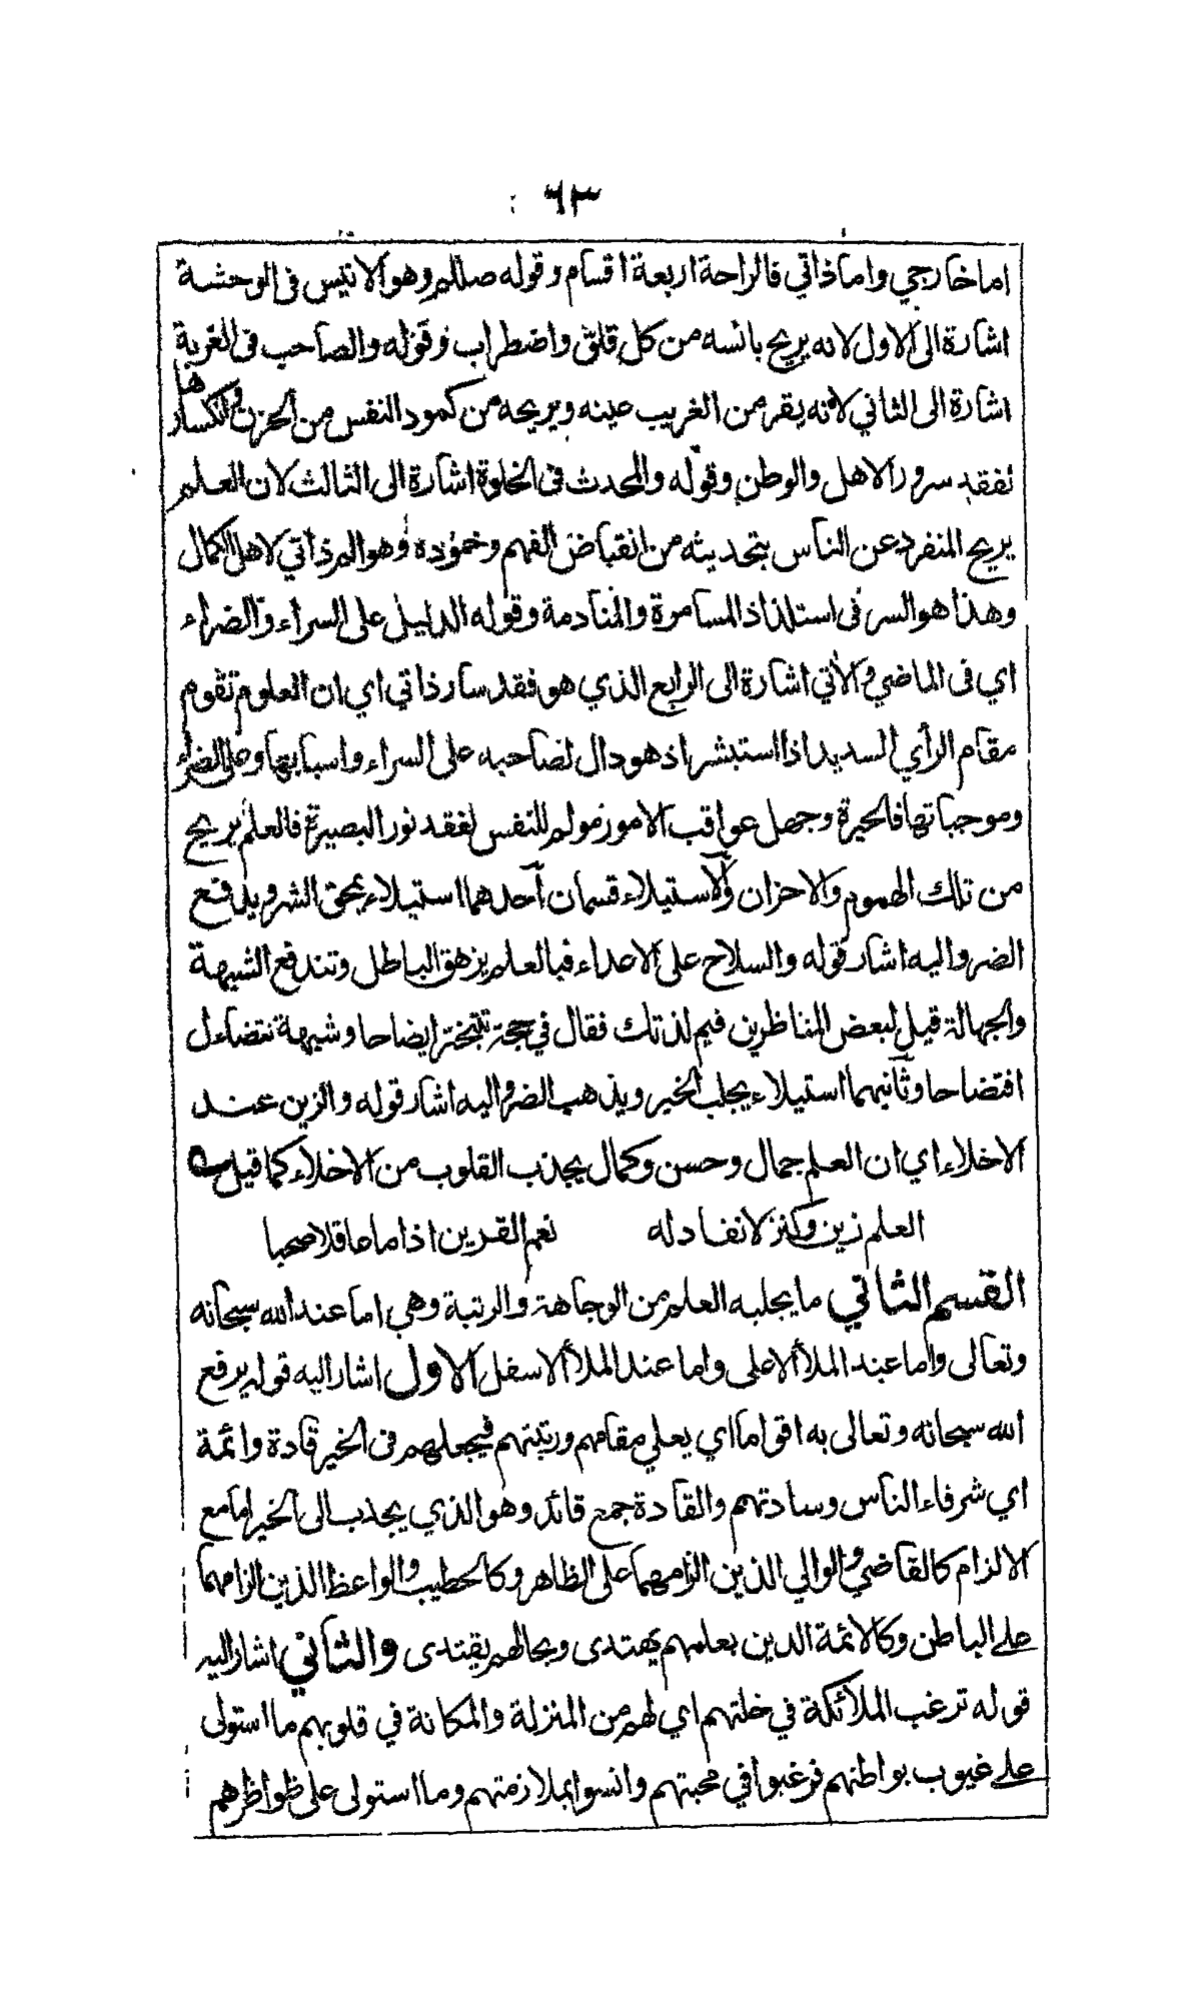 ٦٣
اما خارجي واما ذاتي فالراحة اربعة اقسام وقوله صللم وهو الانيس فى الوحشة
اشارة الى الاول لانه يريح بانسه من كل قلق واضطراب وقوله والصاحب فى الغربة
اشارة الى الثاني لانه يقر من الغريب عينه ويريحه من كمود النفس من الحزن وانكسارها
لفقد سرور الاهل والوطن وقوله والمحدث فى الخلوة اشارة الى الثالث لان العلم
يريح المنفرد عن الناس بتحديثه من انقباض الفهم وخموده وهو الم ذاتي لاهل الكمال
وهذا هو السر فى استلذاذ المسامرة والمنادمة وقوله الدليل على السراء والضراء
اي فى الماضي والآتي اشارة الى الرابع الذي هو فقد سار ذاتي اي ان العلوم تقوم
مقام الرأي السديد اذا استبشر اذ هو دال لصاحبه على السراء واسبابها وعلى الضراء
وموجباتها فالحيرة وجهل عواقب الامور مولم للنفس لفقد نور البصيرة فالعلم يريح
من تلك الهموم والاحزان والاستيلاء قسمان احدهما استيلاء يمحق الشر ويدفع
الضر واليه اشار قوله والسلاح على الاعداء فبالعلم يزهق الباطل وتندفع الشبهة
والجهالة قيل لبعض المناظرين فيم لذتك فقال في حجة تتبختر ايضاحا وشبهة تتضاءل
افتضاحا وثانيهما استيلاء يجلب الخير ويذهب الضر واليه اشار قوله والزين عند
الاخلاء اي ان العلم جمال وحسن وكمال يجذب القلوب من الاخلاء كما قيل
العلم زين وكنز لا نفاد له نعم القرين اذا ما عاقلا صحبا
القسم الثاني ما يجلبه العلم من الوجاهة والرتبة وهي اما عند الله سبحانه
وتعالى واما عند الملأ الاعلى واما عند الملأ الاسفل الاول اشار اليه قوله يرفع
الله سبحانه وتعالى به اقواما اي يعلي مقامهم ورتبتهم فيجعلهم فى الخير قادة وائمة
اي شرفاء الناس وسادتهم والقادة جمع قائد وهو الذي يجذب الى الخير اما مع
الالزام كالقاضي والوالي الذين الزامهما على الظاهر وكالخطيب والواعظ الذين الزامهما
على الباطن وكالائمة الدين بعلمهم يهتدى وبحالهم يقتدى والثاني اشار اليه
قوله ترغب الملائكة في خلتهم اي لهم من المنزلة والمكانة في قلوبهم ما استولى
على غيوب بواطنهم فرغبوا في محبتهم وانسوا بملازمتهم وما استولى على ظواهرهم